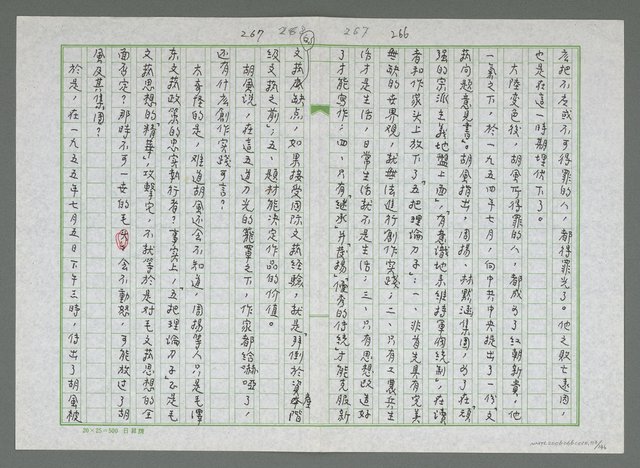 267 266
267
麼把不應或不可得罪的人，都得罪光了。他之敗亡遠因，
也是在這一時期埋伏下了。
大陸變色後，胡風所得罪的人，都成了紅朝新貴，他
一氣之下，於一九五四年七月，向中共中央提出了一份「文
藝問題意見書」。胡風指出，周揚、林默涵集團，為了在頑
強的宗派主義地盤上面，「有意識地來維持軍閥統制」，在讀
者和作家頭上放下了「五把理論刀子」：一、非首先具有完美
無缺的世界觀，就無法進行創作實踐；二、只有工農兵生
活才是生活，日常生活就不是生活；三、只有思想改造好
了才能寫作；四、只有「繼承并發揚」「優秀的傳統才能克服新
文藝底缺点，如果接受國際文藝經驗，就是「拜倒於資產階
級文藝之前」；五、題材能決定作品的價值。
胡風說，在這五道刀光的籠罩之下，作家都給嚇啞了，
還有什麼創作實踐可言？
太奇怪的是，難道胡風還會不知道，周揚等人只是毛澤
東文藝政策的忠實執行者？事實上，五把理論刀子，正是毛
文藝思想的「精華」，攻擊它，不就等於是對毛文藝思想的全
面否定？那時不可一世的毛 會不動怒，可能放過了胡
風及其集團？
於是，在一九五五年七月五日下午三時，傳出了胡風被
20×25=500